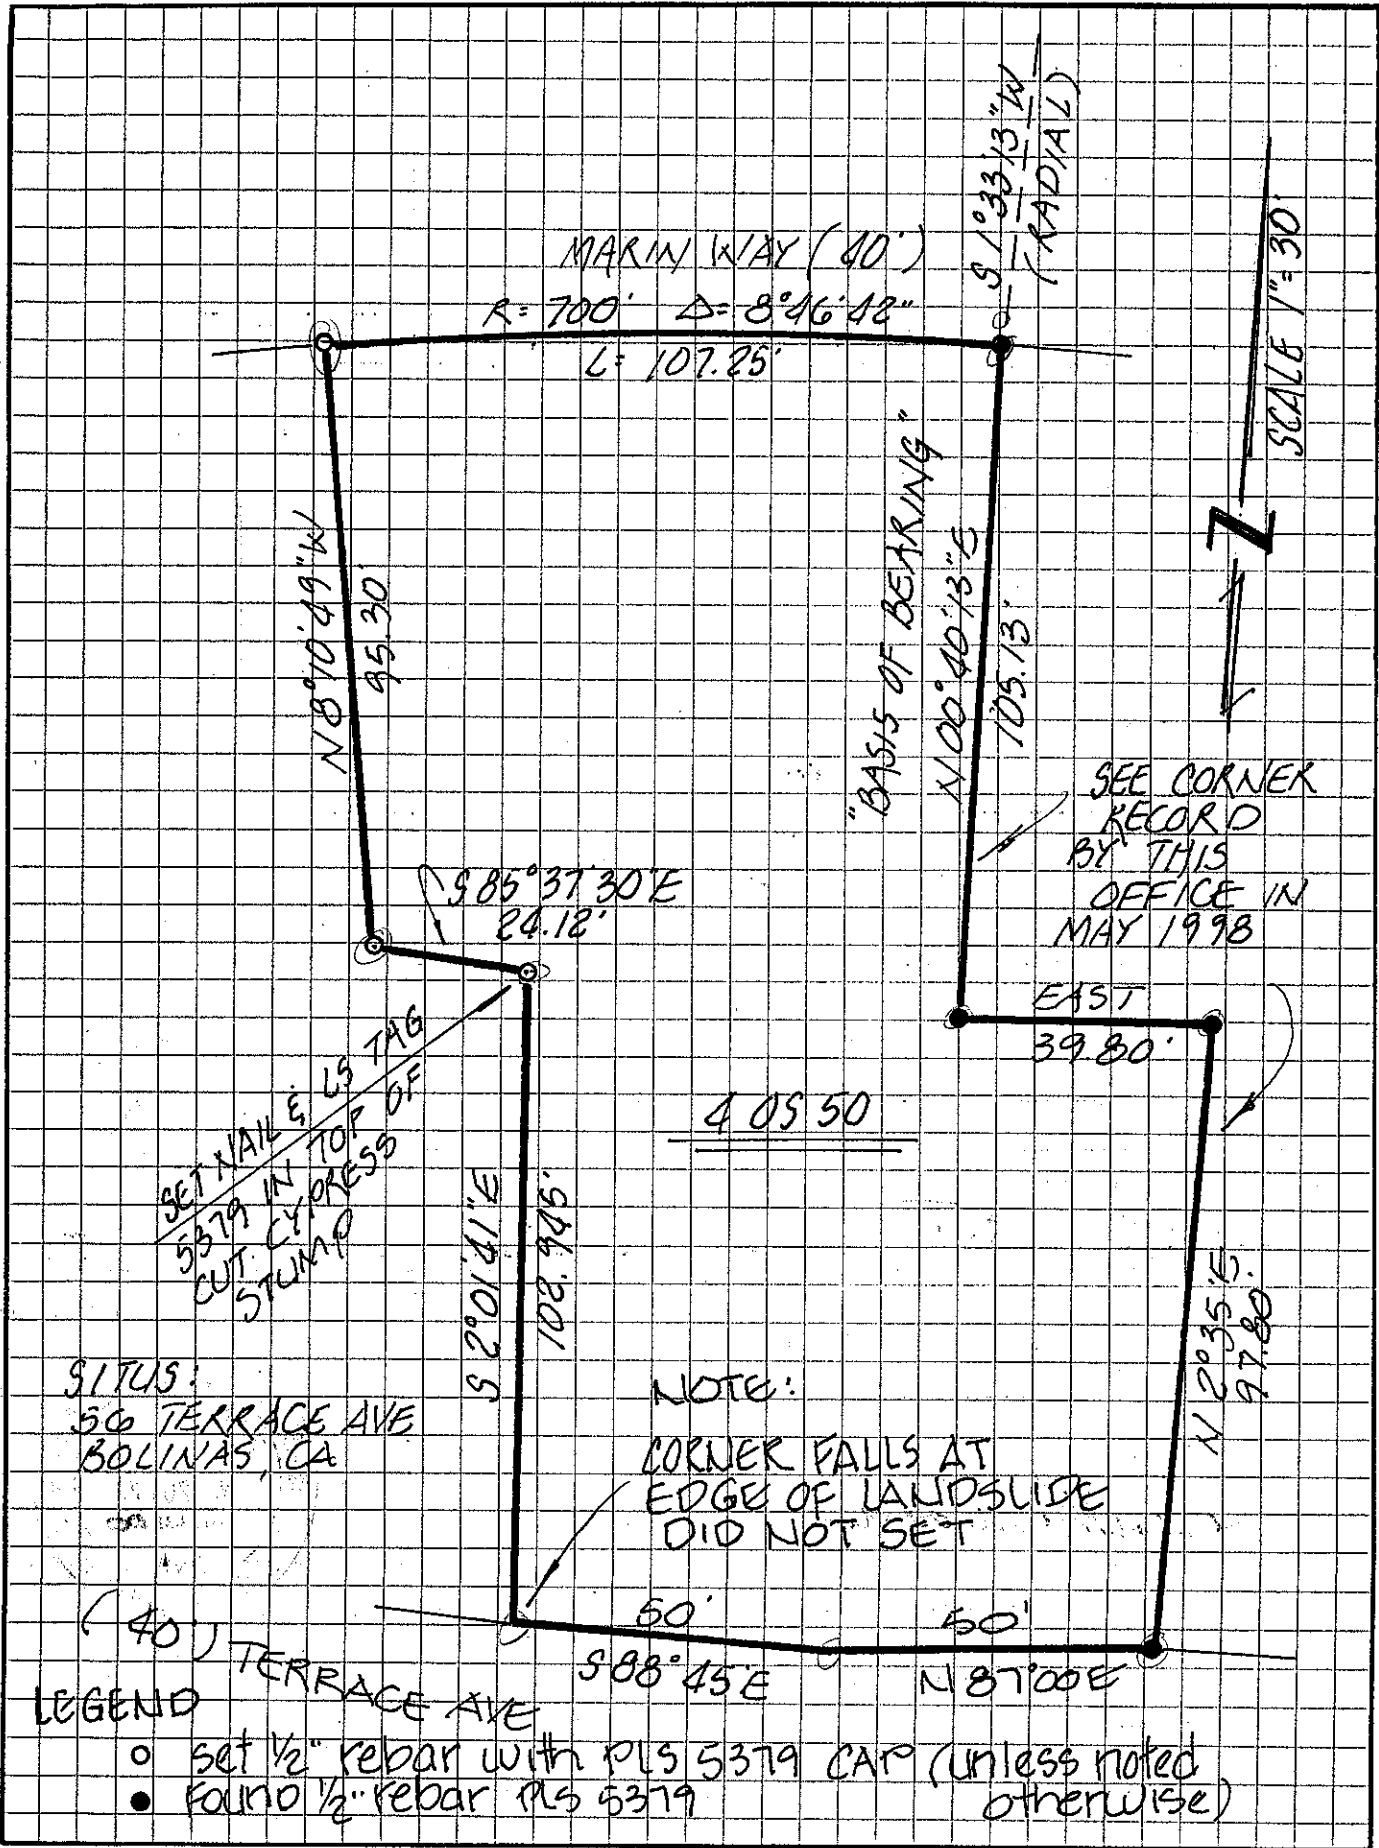 S 1°33'13"W
(RADIAL)
MARIN WAY (40')
R= 700' Δ= 8°46'42"
L= 107.25'
SCALE 1"=30'
Z
N 8°10'49"W
95.30'
"BASIS OF BEARING"
N 00°40'13"E
105.13'
SEE CORNER
RECORD
BY THIS
OFFICE IN
MAY 1998
S 85°37'30"E
24.12'
EAST
39.80'
SET NAIL & LS TAG
5379 IN TOP OF
CUT CYPRESS
STUMP
4 OS 50
S 2°01'41"E
102.945'
N 2°35'E.
97.80
SITUS:
56 TERRACE AVE
BOLINAS, CA
NOTE:
CORNER FALLS AT
EDGE OF LANDSLIDE
DID NOT SET
50'
50'
S 88°45'E
N 87°00'E
(40') TERRACE AVE
LEGEND
○ set 1/2" rebar with PLS 5379 CAP (unless noted
otherwise)
● Found 1/2" rebar PLS 5379